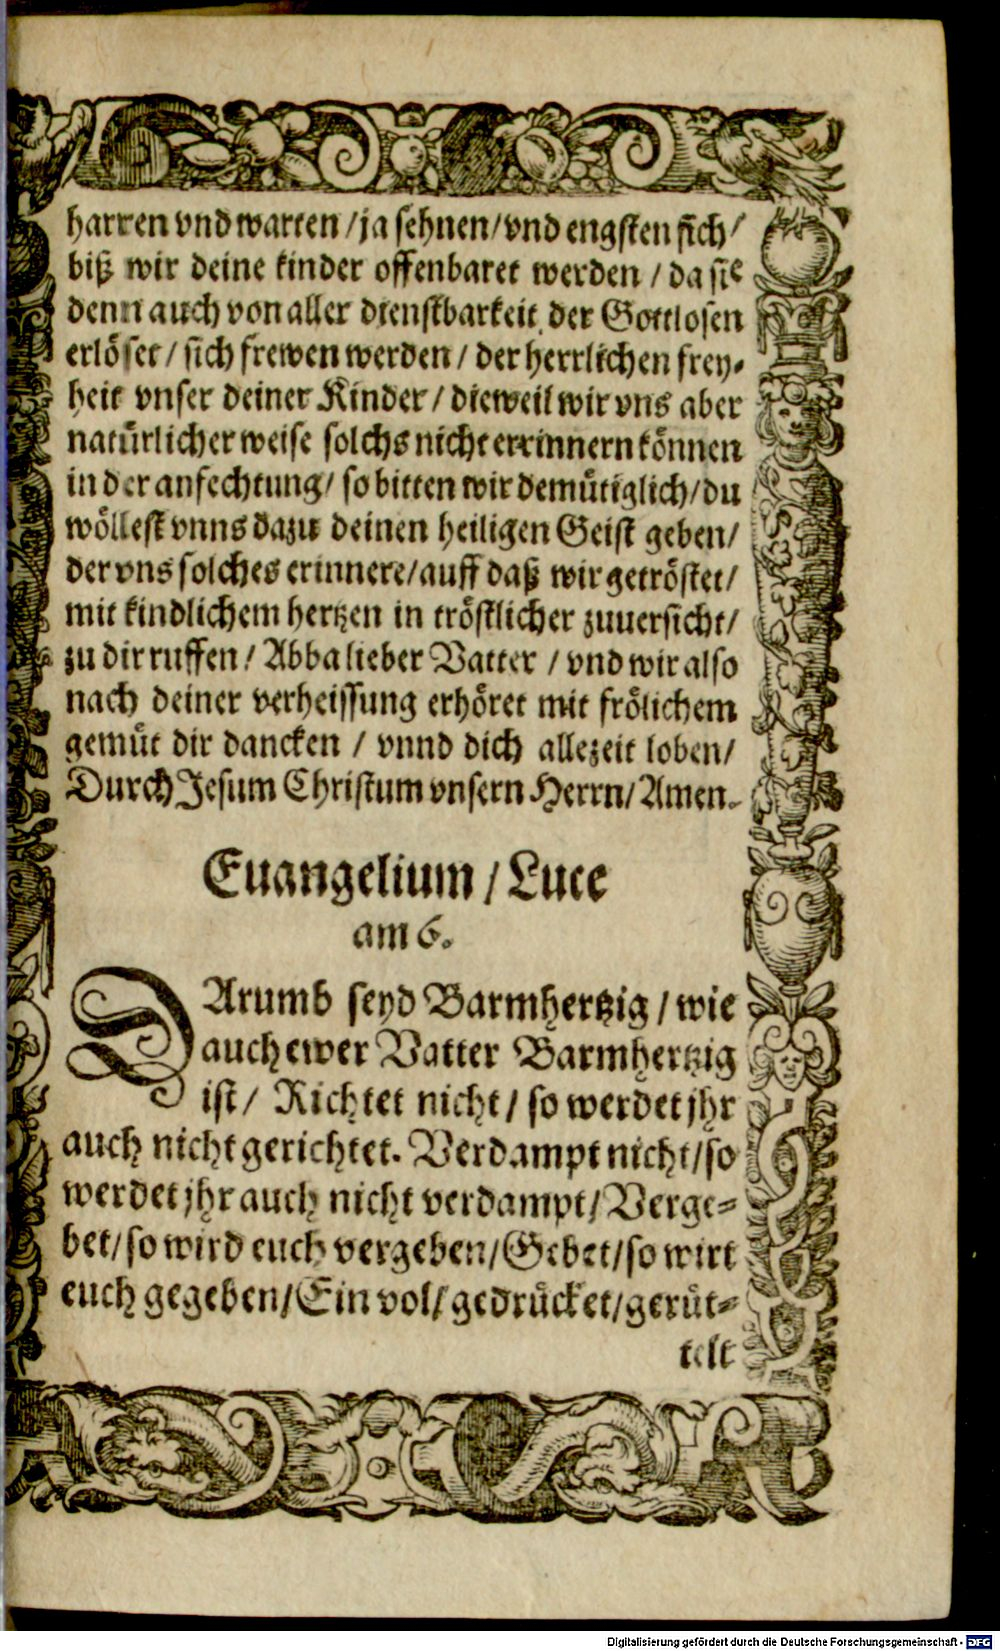 harren vnd warten / ja sehnen / vnd engsten sich /
biß wir deine kinder offenbaret werden / da sie
denn auch von aller dienstbarkeit der Gottlosen
erlöset / sich frewen werden / der herrlichen frey-
heit vnser deiner Kinder / dieweil wir vns aber
natürlicher weise solchs nicht errinnern können
in der anfechtung / so bitten wir demütiglich / du
wöllest vnns dazu deinen heiligen Geist geben /
der vns solches erinnere / auff daß wir getröstet /
mit kindlichem hertzen in tröstlicher zuuersicht /
zu dir ruffen / Abba lieber Vatter / vnd wir also
nach deiner verheissung erhöret mit frölichem
gemüt dir dancken / vnnd dich allezeit loben /
Durch Jesum Christum vnsern Herrn / Amen.
Euangelium / Luce
am 6.
DArumb seyd Barmhertzig / wie
auch ewer Vatter Barmhertzig
ist / Richtet nicht / so werdet jhr
auch nicht gerichtet. Verdampt nicht / so
werdet jhr auch nicht verdampt / Verge-
bet / so wird euch vergeben / Gebet / so wirt
euch gegeben / Ein vol / gedrücket / gerüt-
telt
Digitalisierung gefördert durch die Deutsche Forschungsgemeinschaft - DFG